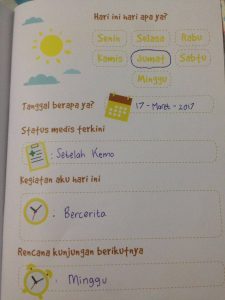 Hari ini hari apa ya?
Senin Selasa Rabu
Kamis Jumat Sabtu
Minggu
Tanggal berapa ya? 17 - Maret - 2017
Status medis terkini
: Setelah Kemo
Kegiatan aku hari ini
: Bercerita
Rencana kunjungan berikutnya
: Minggu